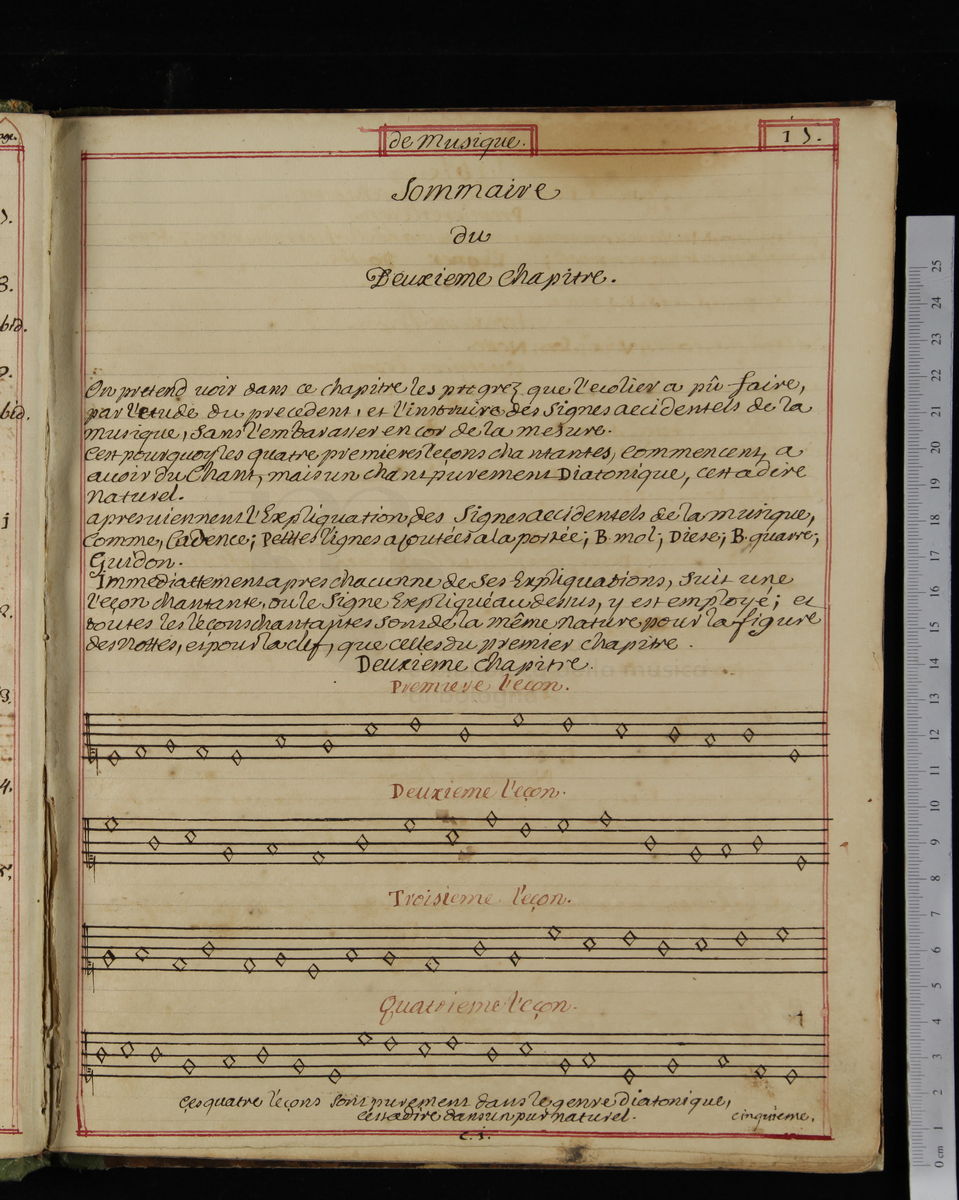 de Musique.
15.
Sommaire
du
Deuxieme Chapitre.
On pretend voir dans ce chapitre les progrez que l'ecolier a pû faire,
par l'etude du precedent, et l'instruire des Signes accidentels de la
musique, sans l'embarasser encor de la mesure.
C'est pourquoy les quatre premieres leçons chantantes, commencent, a
avoir du Chant, mais un chant purement Diatonique, c'est a dire
naturel.
apres viennent l'Expliquation des Signes accidentels de la musique,
Comme, Cadence; Petites lignes ajoutées a la portée; B. mol; Diese; B. quarre;
Guidon.
Immediattement apres chacunne de ses Expliquations, suit une
l'eçon chantante, ou le Signe Expliqué au dessus, y est employé; et
toutes les leçons chantantes sont de la même nature pour la figure
des nottes, et pour la clef, que celles du premier chapitre.
Deuxieme Chapitre.
Premiere l'eçon.
Deuxieme l'eçon.
Troisieme l'eçon.
Quatrieme l'eçon.
Ces quatre l'eçons sont purement dans le genre diatonique,
c'est a dire dans un pur naturel.
cinquieme.
C. j.
age.
3.
bid.
bid.
j
2.
3.
4.
5.
25
24
23
22
21
20
19
18
17
16
15
14
13
12
11
10
9
8
7
6
5
4
3
2
1
0 cm